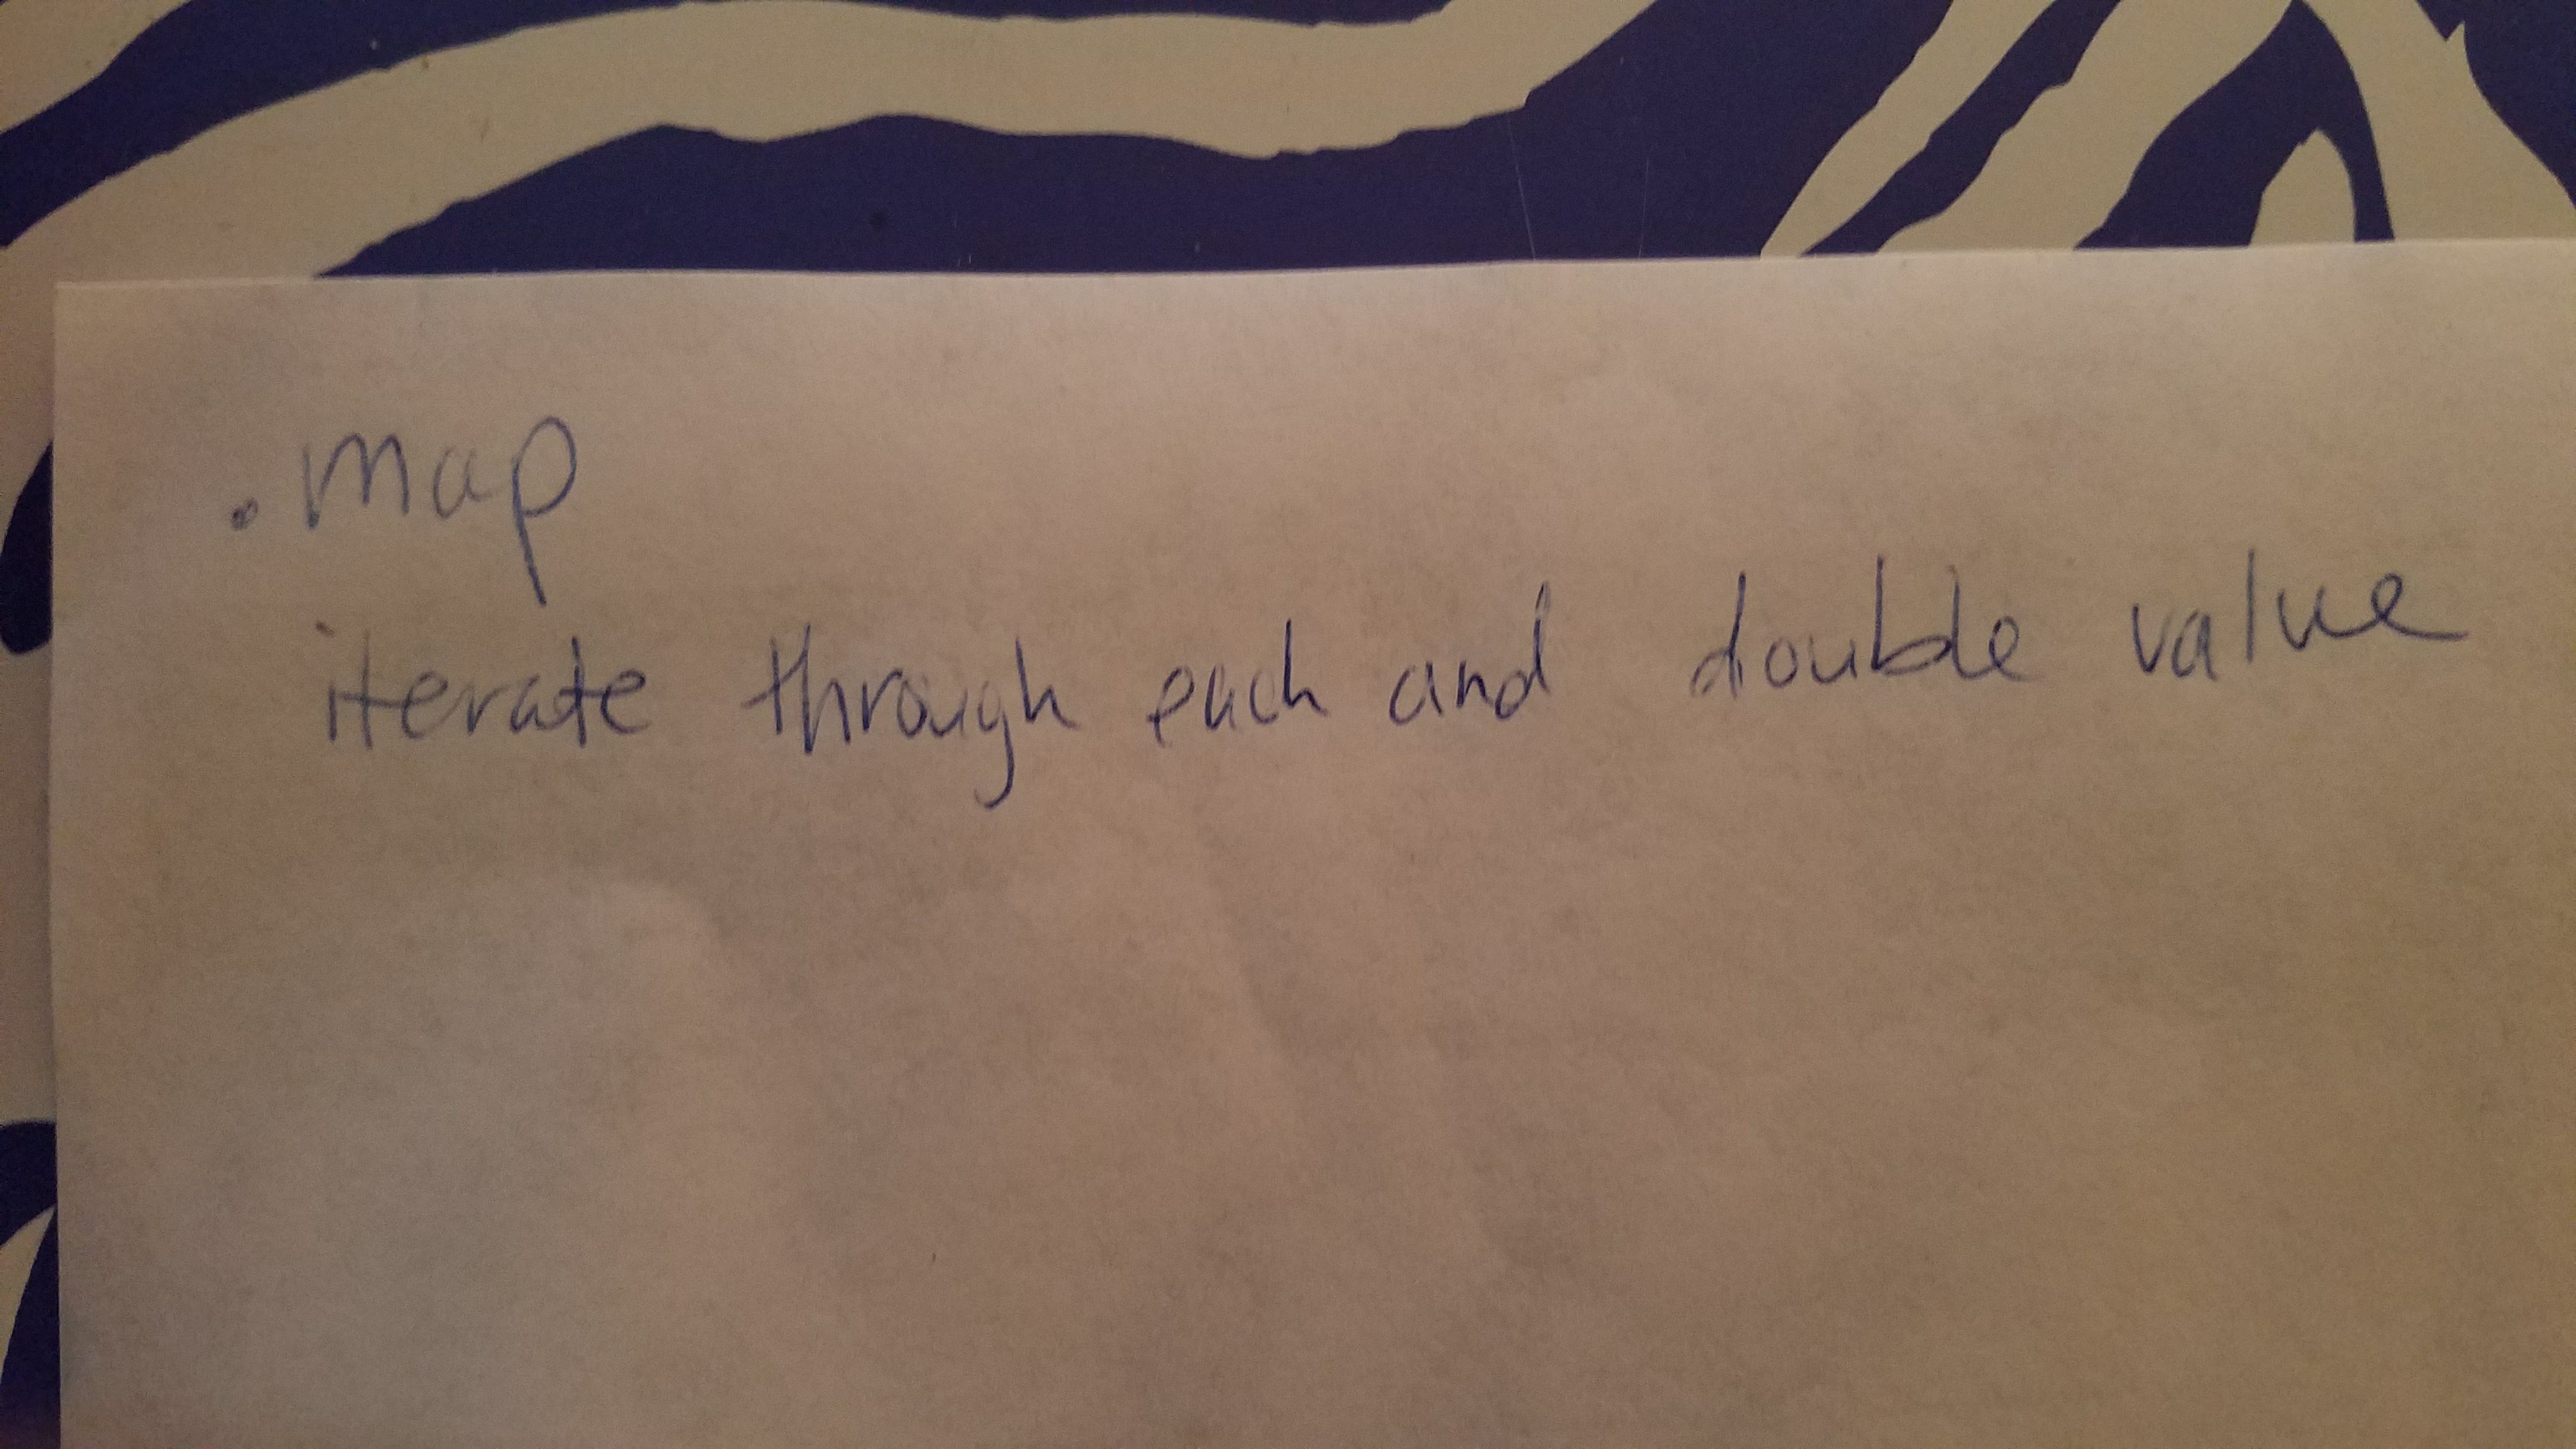 .map
iterate through each and double value